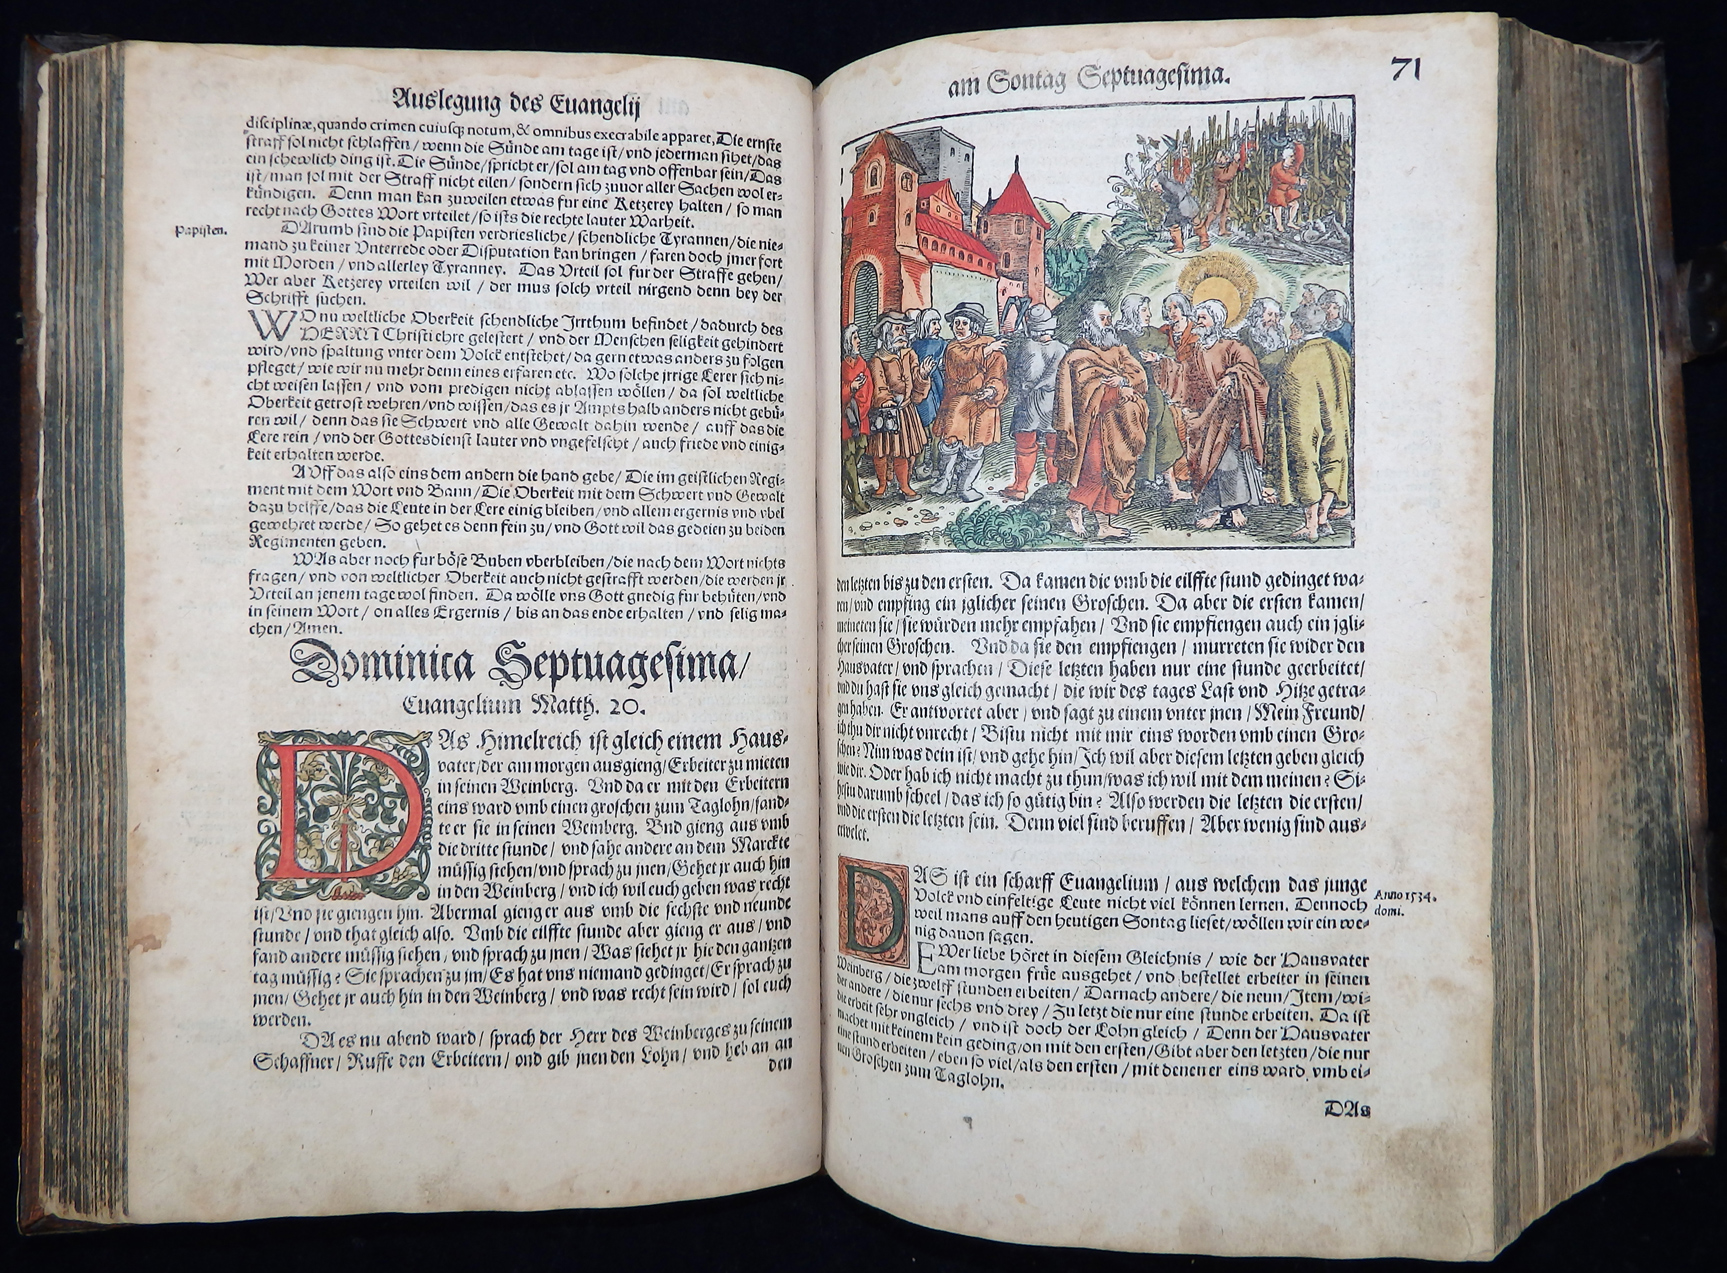 Auslegung des Euangelij
disciplinæ, quando crimen cuiusq; notum, & omnibus execrabile apparet, Die ernste
straff sol nicht schlaffen / wenn die Sünde am tage ist / vnd jederman sihet / das
ein schewlich ding ist. Die Sünde / spricht er / sol am tag vnd offenbar sein / Das
ist / man sol mit der Straff nicht eilen / sondern sich zuuor aller Sachen wol er-
kündigen. Denn man kan zuweilen etwas fur eine Ketzerey halten / so man
recht nach Gottes Wort vrteilet / so ists die rechte lauter Warheit.
Papisten.
DArumb sind die Papisten verdriesliche / schendliche Tyrannen / die nie-
mand zu keiner Vnterrede oder Disputation kan bringen / faren doch jmer fort
mit Morden / vnd allerley Tyranney. Das Vrteil sol fur der Straffe gehen /
Wer aber Ketzerey vrteilen wil / der mus solch vrteil nirgend denn bey der
Schrifft suchen.
WO nu weltliche Oberkeit schendliche Jrrthum befindet / dadurch des
HERRN Christi ehre gelestert / vnd der Menschen seligkeit gehindert
wird / vnd spaltung vnter dem Volck entstehet / da gern etwas anders zu folgen
pfleget / wie wir nu mehr denn eines erfaren etc. Wo solche jrrige Lerer sich ni-
cht weisen lassen / vnd vom predigen nicht ablassen wöllen / da sol weltliche
Oberkeit getrost wehren / vnd wissen / das es jr Ampts halb anders nicht gebü-
ren wil / denn das sie Schwert vnd alle Gewalt dahin wende / auff das die
Lere rein / vnd der Gottesdienst lauter vnd vngefelscht / auch friede vnd einig-
keit erhalten werde.
AVff das also eins dem andern die hand gebe / Die im geistlichen Regi-
ment mit dem Wort vnd Bann / Die Oberkeit mit dem Schwert vnd Gewalt
dazu helffe / das die Leute in der Lere einig bleiben / vnd allem ergernis vnd vbel
gewehret werde / So gehet es denn fein zu / vnd Gott wil das gedeien zu beiden
Regimenten geben.
WAs aber noch fur böse Buben vberbleiben / die nach dem Wort nichts
fragen / vnd von weltlicher Oberkeit auch nicht gestrafft werden / die werden jr
Vrteil an jenem tage wol finden. Da wölle vns Gott gnedig fur behüten / vnd
in seinem Wort / on alles Ergernis / bis an das ende erhalten / vnd selig ma-
chen / Amen.
Dominica Septuagesima /
Euangelium Matth. 20.
DAs Himelreich ist gleich einem Haus-
vater / der am morgen ausgieng / Erbeiter zu mieten
in seinen Weinberg. Vnd da er mit den Erbeitern
eins ward vmb einen groschen zum Taglohn / sand-
te er sie in seinen Weinberg. Vnd gieng aus vmb
die dritte stunde / vnd sahe andere an dem Marckte
müssig stehen / vnd sprach zu jnen / Gehet jr auch hin
in den Weinberg / vnd ich wil euch geben was recht
ist / Vnd sie giengen hin. Abermal gieng er aus vmb die sechste vnd neunde
stunde / vnd that gleich also. Vmb die eilffte stunde aber gieng er aus / vnd
fand andere müssig stehen / vnd sprach zu jnen / Was stehet jr hie den gantzen
tag müssig? Sie sprachen zu jm / Es hat vns niemand gedinget / Er sprach zu
jnen / Gehet jr auch hin in den Weinberg / vnd was recht sein wird / sol euch
werden.
DA es nu abend ward / sprach der Herr des Weinberges zu seinem
Schaffner / Ruffe den Erbeitern / vnd gib jnen den Lohn / vnd heb an an
den
am Sontag Septuagesima.
71
den letzten bis zu den ersten. Da kamen die vmb die eilffte stund gedinget wa-
ren / vnd empfing ein jglicher seinen Groschen. Da aber die ersten kamen /
meineten sie / sie würden mehr empfahen / Vnd sie empfiengen auch ein jgli-
cher seinen Groschen. Vnd da sie den empfiengen / murreten sie wider den
Hausvater / vnd sprachen / Diese letzten haben nur eine stunde geerbeitet /
vnd du hast sie vns gleich gemacht / die wir des tages Last vnd Hitze getra-
gen haben. Er antwortet aber / vnd sagt zu einem vnter jnen / Mein Freund /
ich thu dir nicht vnrecht / Bistu nicht mit mir eins worden vmb einen Gro-
schen? Nim was dein ist / vnd gehe hin / Ich wil aber diesem letzten geben gleich
wie dir. Oder hab ich nicht macht zu thun / was ich wil mit dem meinen? Si-
hestu darumb scheel / das ich so gütig bin? Also werden die letzten die ersten /
vnd die ersten die letzten sein. Denn viel sind beruffen / Aber wenig sind aus-
erwelet.
DAS ist ein scharff Euangelium / aus welchem das junge
Volck vnd einfeltige Leute nicht viel können lernen. Dennoch
weil mans auff den heutigen Sontag lieset / wöllen wir ein we-
nig dauon sagen.
Anno 1534.
domi.
EWer liebe höret in diesem Gleichnis / wie der Hausvater
am morgen früe ausgehet / vnd bestellet erbeiter in seinen
Weinberg / die zwelff stunden erbeiten / Darnach andere / die neun / Item / wi-
der andere / die nur sechs vnd drey / Zu letzt die nur eine stunde erbeiten. Da ist
die erbeit sehr vngleich / vnd ist doch der Lohn gleich / Denn der Hausvater
machet mit keinem kein geding / on mit den ersten / Gibt aber den letzten / die nur
eine stund erbeiten / eben so viel / als den ersten / mit denen er eins ward vmb ei-
nen Groschen zum Taglohn.
DAs